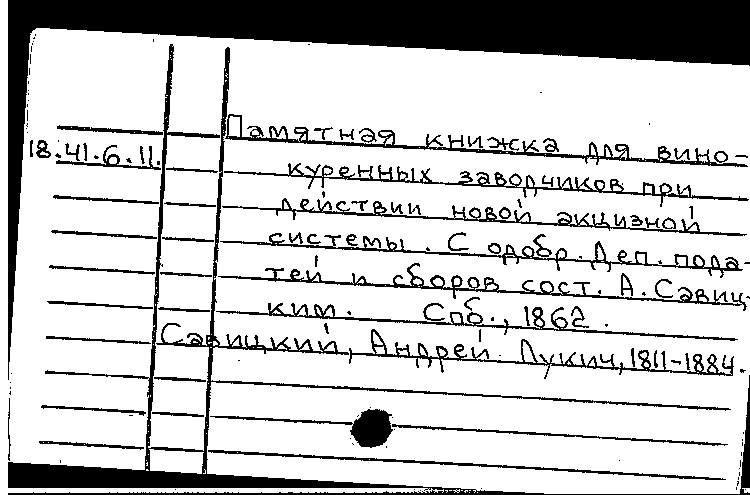 Памятная книжка для вино-
18.41.6.11.
куренных заводчиков при
действии новой акцизной
системы. С одобр. Деп. пода-
тей и сборов сост. А. Савиц-
ким. Спб., 1862.
Савицкий, Андрей Лукич, 1811-1884.